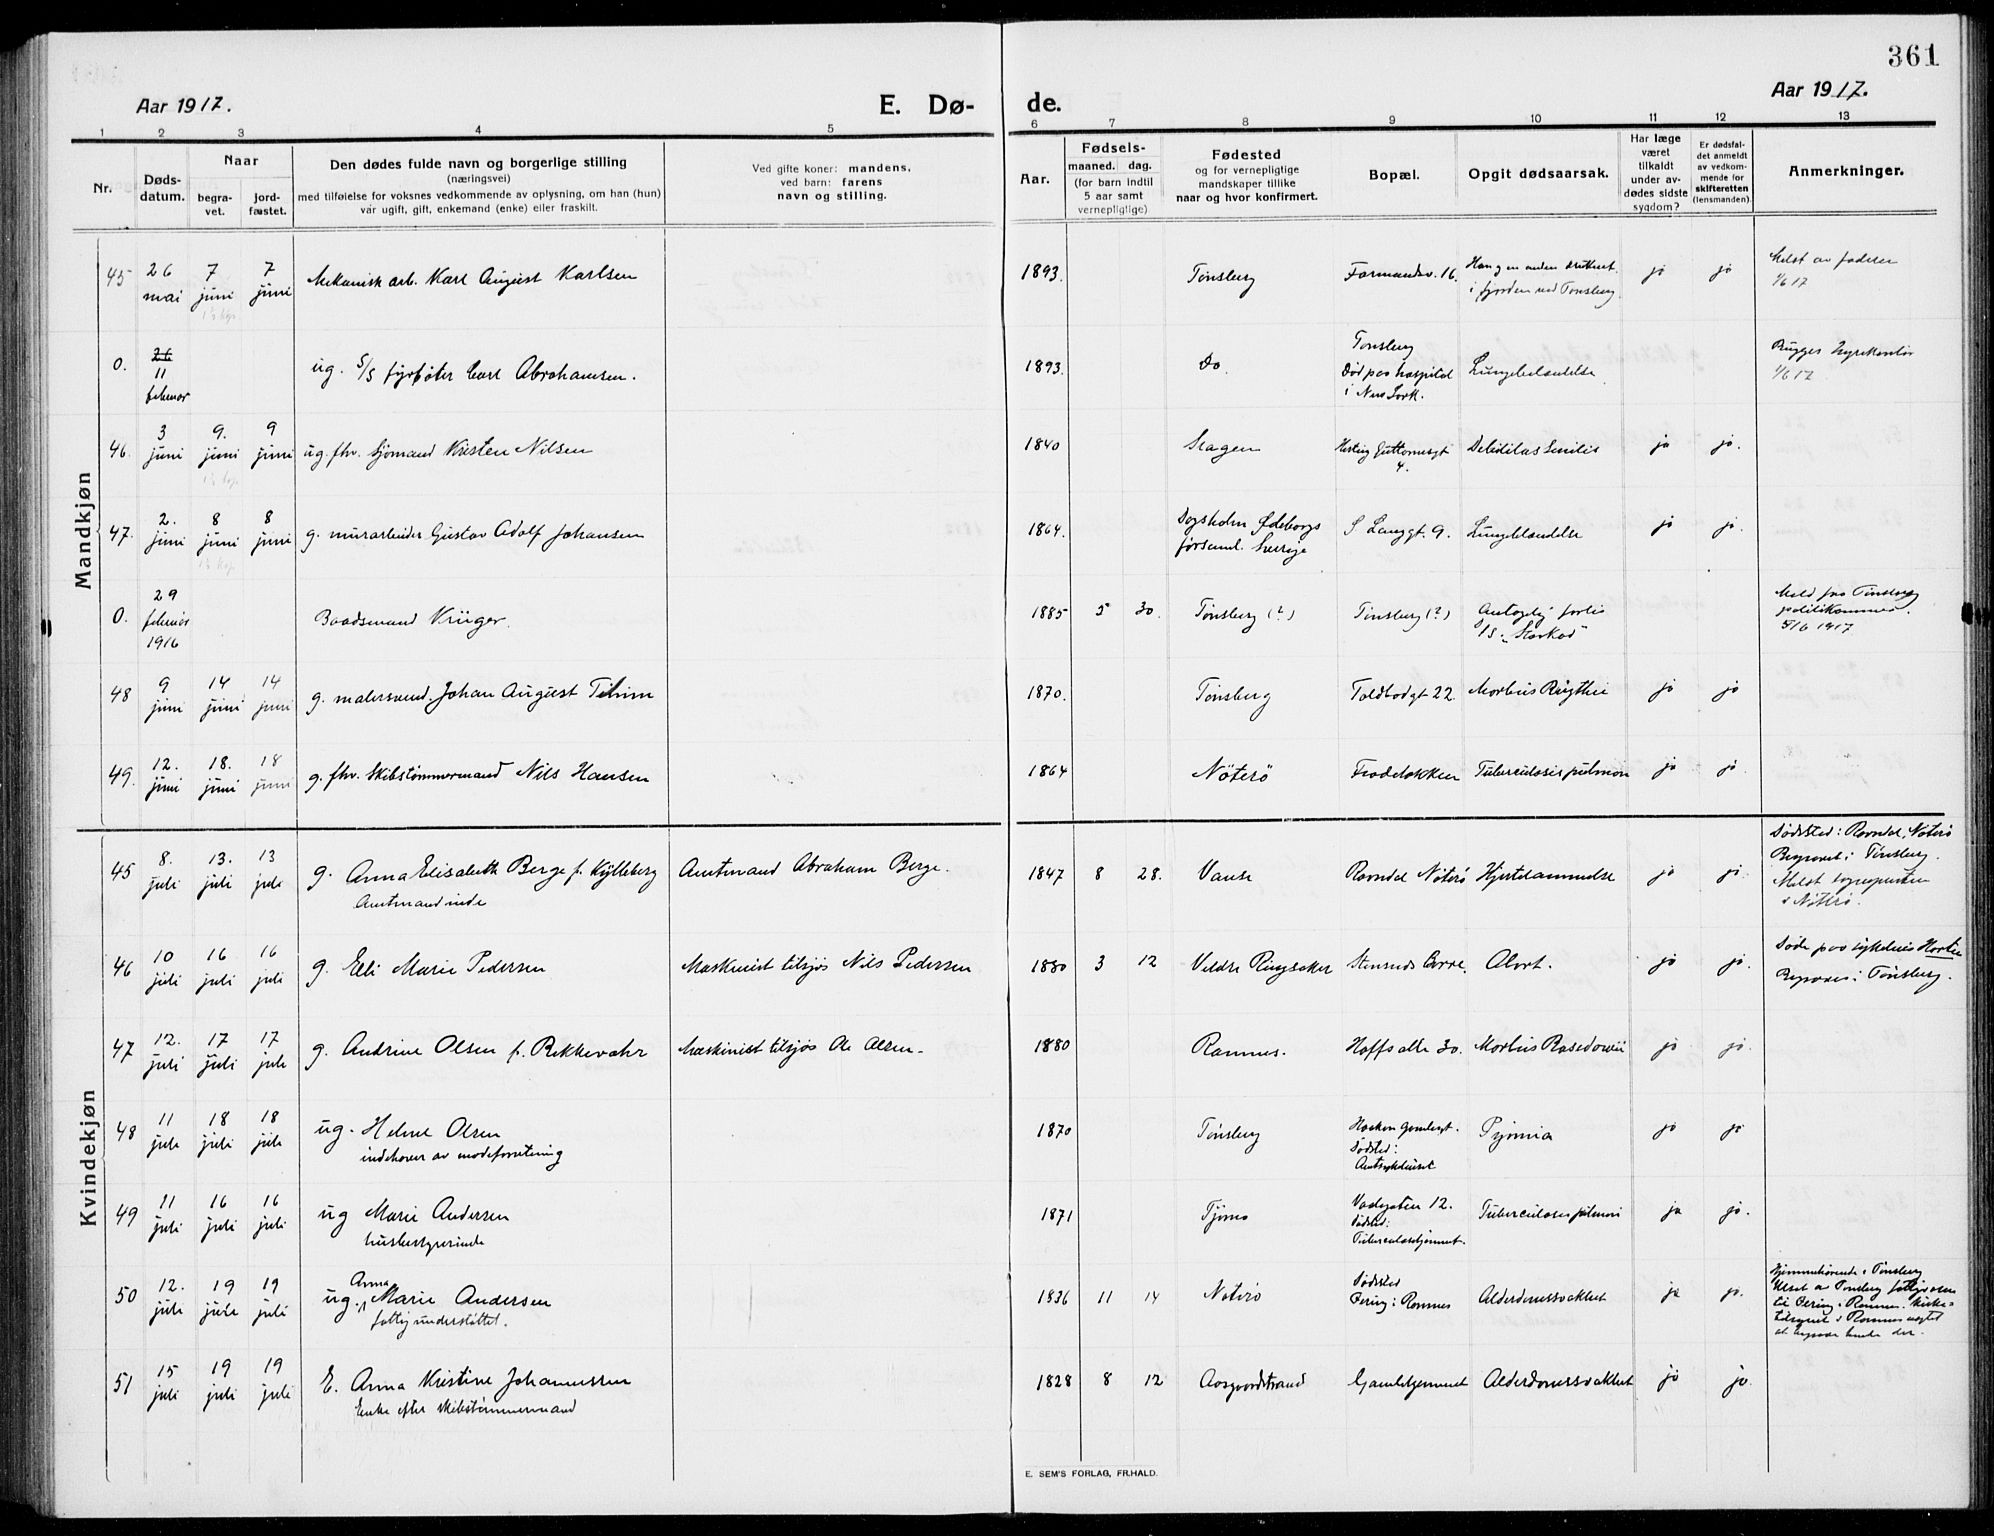 361
Aar 1917.
E. Dø-
de.
Aar 1917.
1 2 3 4 5 6 7 8 9 10 11 12 13
Nr.
Døds-
datum.
Naar
begra-
vet.
jord-
fæstet.
Den dødes fulde navn og borgerlige stilling
(næringsvei)
med tilføielse for voksnes vedkommende av oplysning, om han (hun)
var ugift, gift, enkemand (enke) eller fraskilt.
Ved gifte koner: mandens,
ved barn: farens
navn og stilling.
Aar.
Fødsels-
maaned. dag.
(for barn indtil
5 aar samt
vernepligtige)
Fødested
og for vernepligtige
mandskaper tillike
naar og hvor konfirmert.
Bopæl.
Opgit dødsaarsak.
Har læge
været
tilkaldt
under av-
dødes sidste
sygdom?
Er dødsfal-
det anmeldt
av vedkom-
mende for
skifteretten
(lensmanden).
Anmerkninger.
Mandkjøn
45 26 mai 7 juni 7 juni Mekanisk arb. Karl August Karlsen 1893. Tønsberg Formandsv. 16. i fjorden ved Tønsberg. ja ja Meldt av faderen
1/6 17
0. 26 11 februar ug. S/S fyrbøter Carl Abrahamsen. 1893. Do. Tønsberg
Død paa hospital
i New York. Lungebetændelse Bugges Hyrekontor
1/6 17
46. 3 juni 9. juni 9 juni ug. fhv. Sjømand Kristen Nilsen 1840 Slagen Hertug Guttormsgt
4. Debilitas Senilis ja ja.
47. 2. juni 8 juni 8 juni g. murarbeider Gustav Adolf Johansen 1864. församl. Sverige S Langgt. 9. Lungebetændelse ja ja.
0. 29 februar 1916 Baadsmand Krüger. 1885 5 30. Tønsberg (?) Tønsberg (?) Antagelig forlis
S/S. "Starkad" Meld fra Tønsberg
politikammer.
5/6 1917
48 9 juni 14 juni 14 juni g. malersvend. Johan August Thrim 1870. Tønsberg Toldbodgt 22. Morbus Brigthii ja ja
49. 12. juni 18. juni 18 juni g. fhv. Skibstømmermand Nils Hansen 1864 Nøterø Fradelokken Tuberculosis pulmon ja ja.
Kvindekjøn
45 8. juli 13. juli 13 juli g. Anna Elisabeth Berge f. Kylleberg
Amtmandinde Amtmand Abraham Berge. 1847 8 28. Vanse Ravndal Nøterø Hjertelammelse ja ja. Dødssted: Ravndal, Nøterø
Begravet i Tønsberg.
Meldt sognepresten
i Nøterø.
46 10 juli 16 juli 16 juli g. Elli Marie Pedersen Maskinist tilsjøs Nils Pedersen 1880 3 12 Veldre Ringsaker Stensrud Borre. Abort. ja ja. Døde paa sykehus Horten
Begraves i Tønsberg.
47 12. juli 17 juli 17 juli g. Andrine Olsen f. Rekkevahr Maskinist tilsjøs Ole Olsen. 1880 Ramnes. Hoffs alle 30. Morbus Basedowii ja ja.
48 11 juli 18 juli 18 juli ug. Helene Olsen
indehaver av modeforretning 1870 Tønsberg Haakon Gamlesgt.
Dødsted:
Amtsykehuset Pyæmia ja ja
49 11 juli 16 juli 16 juli ug Marie Andersen
husbestyrerinde 1871 Tjømø 12.
Dødsted:
Tuberculosehjemmet. Tuberculosis pulmon ja ja.
50 12. juli 19 juli 19 juli ug. Anna Marie Andersen
fattigunderstøttet. 1836 11 14 Nøterø Dødsted
Bering i Ramnes Alderdomssvakhet ja ja. Hjemmehørende i Tønsberg
Utsat av Tønsberg fattigvæsen
til Bering i Ramnes. Kirke-
tilsynet i Ramnes negtet
at begrave hende der.
51 15 juli 19 juli 19 juli E. Anna Kristine Johannessen
Enke efter skibstømmermand 1828 8 12 Aasgaardstrand Gamlehjemmet Alderdomssvakhet ja ja.
E. SEM'S FORLAG, FR.HALD.